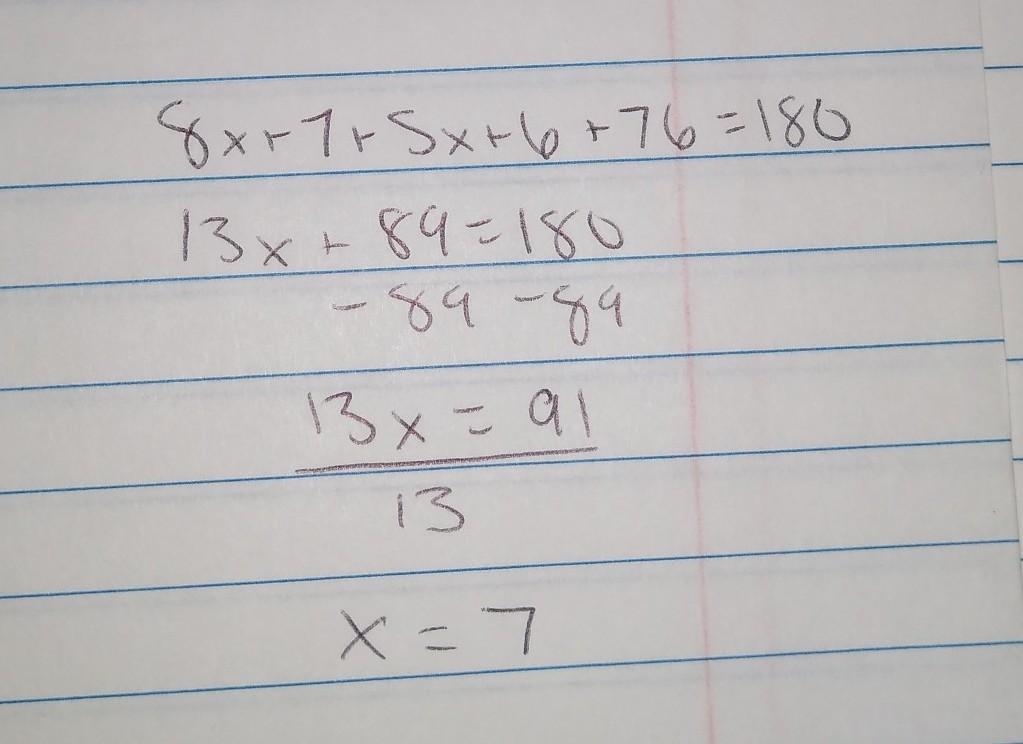 8x+7+5x+6+76=180
13x+89=180
-89 -89
13x=91
13
x=7